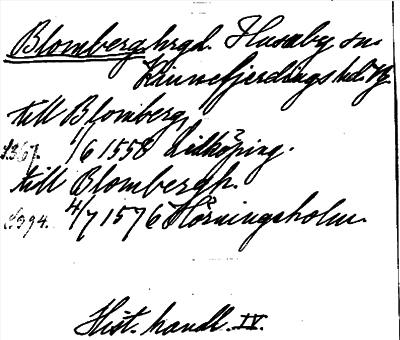 Blomberg hrgd. Husaby sn.
Kinnefjerdings hd. Vg.
till Blomberg,
s. 367. 1/6 1558 Lidköping.
till Blombergh.
s. 994. 4/7 1576 Hörningsholm.
Hist. handl. IV.